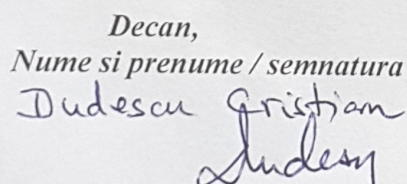 Decan,
Nume si prenume / semnatura
Dudescu Cristian
Dudescu